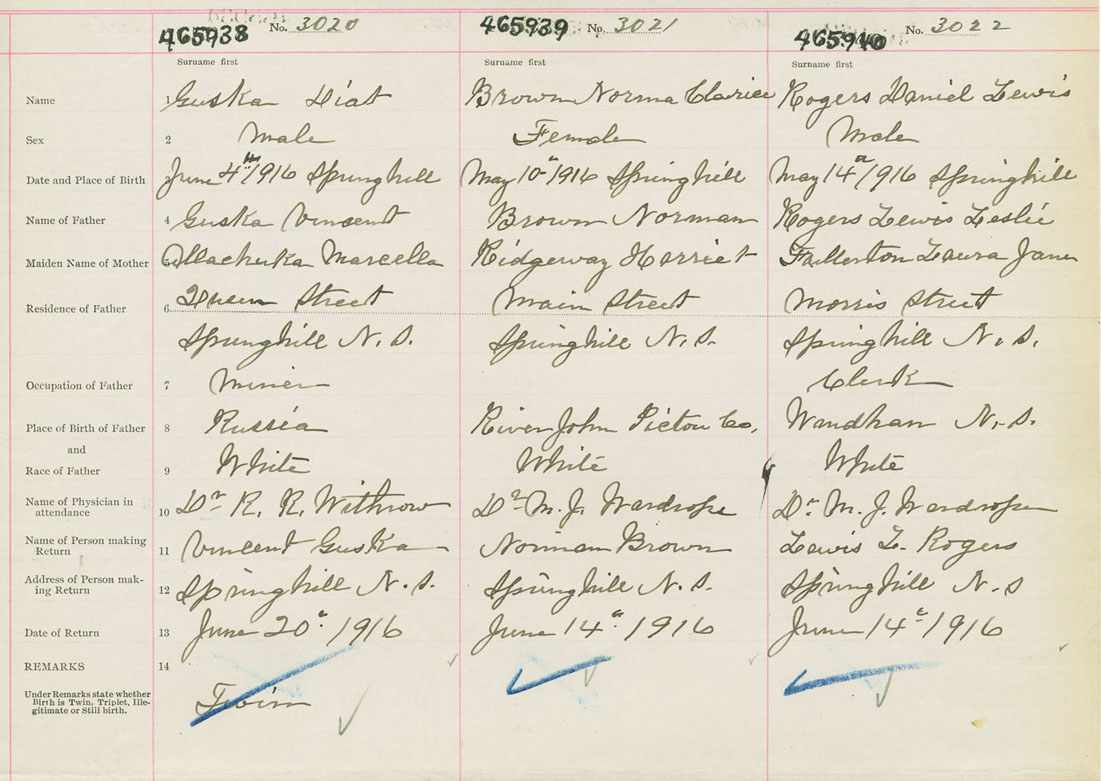 465938 No. 3020
465939 No. 3021
465940 No. 3022
Surname first Surname first Surname first
Name 1 Guska Brown Norma Clarice Rogers Daniel Lewis
Sex 2 Male Female Male
Date and Place of Birth 3 June 4th 1916 Springhill May 10th 1916 Springhill May 14th 1916 Springhill
Name of Father 4 Guska Vincent Brown Norman Rogers Lewis Leslie
Maiden Name of Mother 5 Marcella Ridgeway Harriet Fullerton Laura Jane
Residence of Father 6 Queen Street Main Street Morris Street
Springhill N.S. Springhill N.S. Springhill N.S.
Occupation of Father 7 Miner Clerk
Place of Birth of Father 8 Russia River John Pictou Co. N.S.
and
Race of Father 9 White White White
Name of Physician in
attendance 10 Dr R. R. Withrow Dr M. J. Wardrope Dr M. J. Wardrope
Name of Person making
Return 11 Vincent Guska Norman Brown Lewis L. Rogers
Address of Person mak-
ing Return 12 Springhill N.S. Springhill N.S. Springhill N.S
Date of Return 13 June 20th 1916 June 14th 1916 June 14th 1916
REMARKS 14
Under Remarks state whether
Birth is Twin, Triplet, Ille-
gitimate or Still birth.
Twin